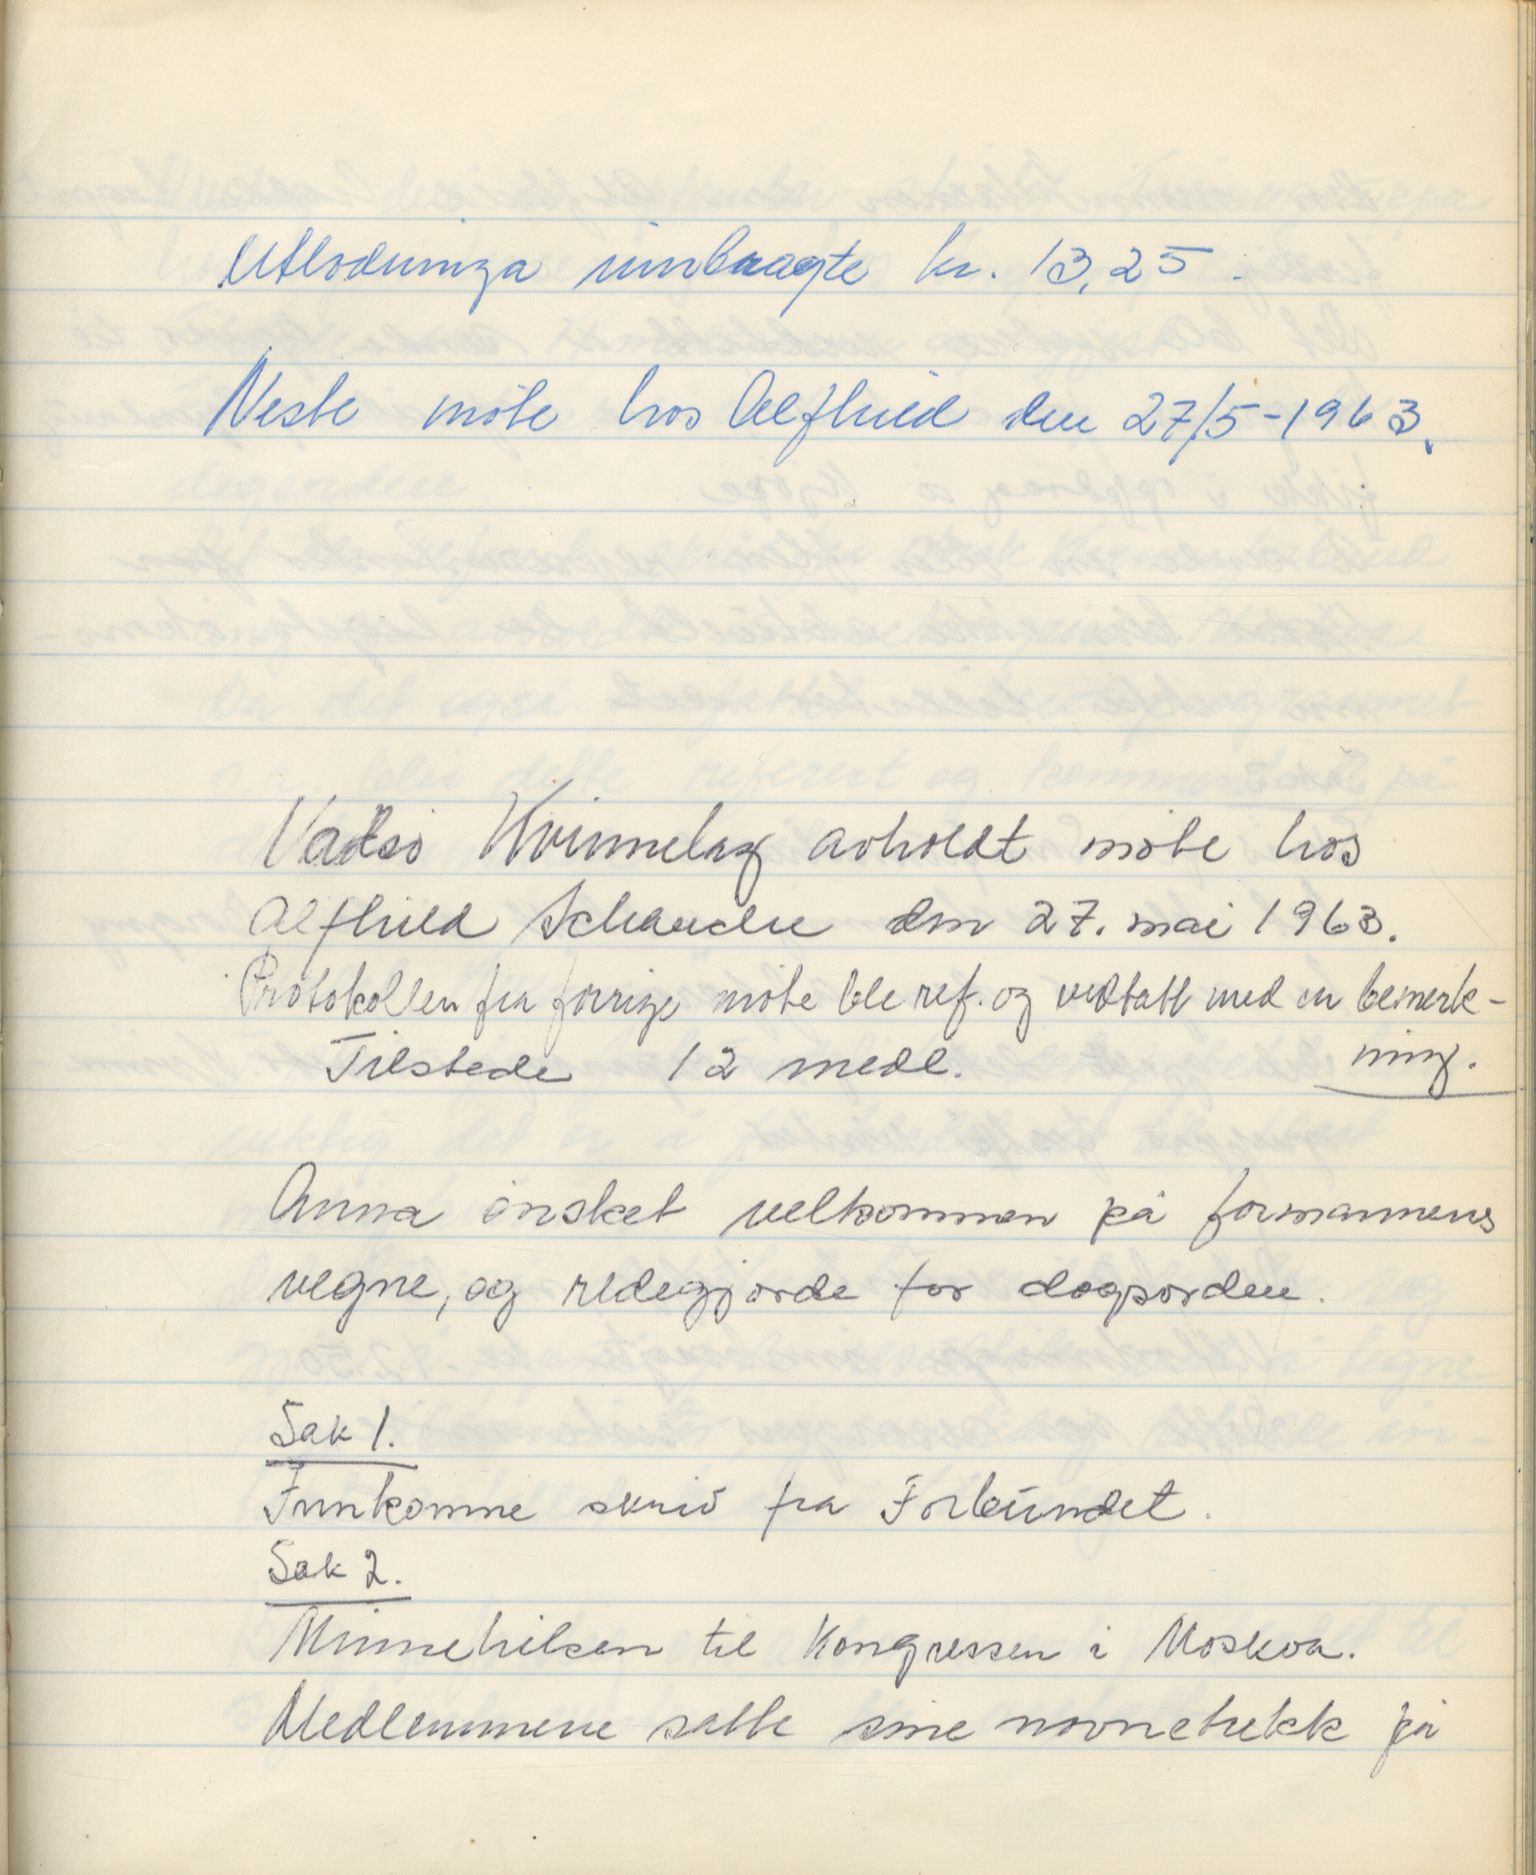 Utlodninga innbragte kr. 13,25.
Neste møte hos Alfhild den 27/5-1963.
Vadsø Kvinnelag avholdt møte hos
Alfhild Schanche den 27. mai 1963.
Protokollen fra forrige møte ble ref. og vedtatt med en bemerk-
ning.
Tilstede 12 medl.
Anna ønsket velkommen på formannens
vegne, og redegjorde for dagsorden.
Sak 1.
Innkomne skriv fra Forbundet.
Sak 2.
Minnehilsen til Kongressen i Moskva.
Medlemmene satte sine navnetrekk på